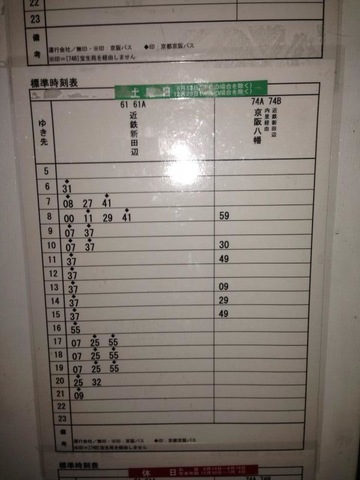 22
23
備考
運行会社/無印・※印 京阪バス ◆印 京都京阪バス
※印=[74B]宝生苑を経由しません
標準時刻表
土曜日
61 61A
74A 74B
ゆき先
近鉄新田辺
京阪八幡
近鉄新田辺
内里経由
5
6 31
7 08 27 41
8 00 11 29 41 59
9 07 37
10 07 37 30
11 37 49
12 37
13 37 09
14 37 29
15 37 49
16 55
17 07 25 55
18 07 25 55
19 07 25 55
20 25 32
21 09
22
23
備考
標準時刻表
休日